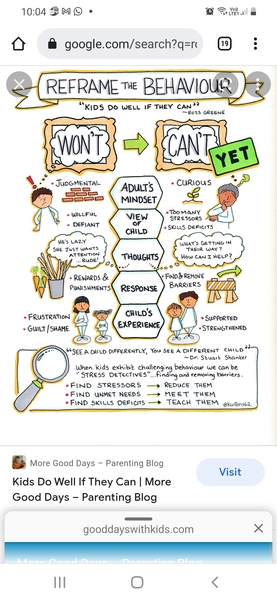 10:04
google.com/search?q=r
19
REFRAME THE BEHAVIOUR
"KIDS DO WELL IF THEY CAN"
~ROSS GREENE
WON'T
CAN'T
YET
JUDGMENTAL
ADULT'S MINDSET
CURIOUS
WILLFUL
DEFIANT
VIEW OF CHILD
TOO MANY STRESSORS
SKILLS DEFICITS
HE'S LAZY
SHE JUST WANTS ATTENTION
...RUDE!
THOUGHTS
WHAT'S GETTING IN THEIR WAY?
HOW CAN I HELP?
REWARDS & PUNISHMENTS
RESPONSE
FIND & REMOVE BARRIERS
FRUSTRATION
GUILT/SHAME
CHILD'S EXPERIENCE
SUPPORTED
STRENGTHENED
"SEE A CHILD DIFFERENTLY, YOU SEE A DIFFERENT CHILD"
~Dr. Stuart Shanker
When kids exhibit challenging behaviour we can be
"STRESS DETECTIVES"...finding and removing barriers.
FIND STRESSORS → REDUCE THEM
FIND UNMET NEEDS → MEET THEM
FIND SKILLS DEFICITS → TEACH THEM
More Good Days – Parenting Blog
Kids Do Well If They Can | More
Good Days – Parenting Blog
Visit
gooddayswithkids.com